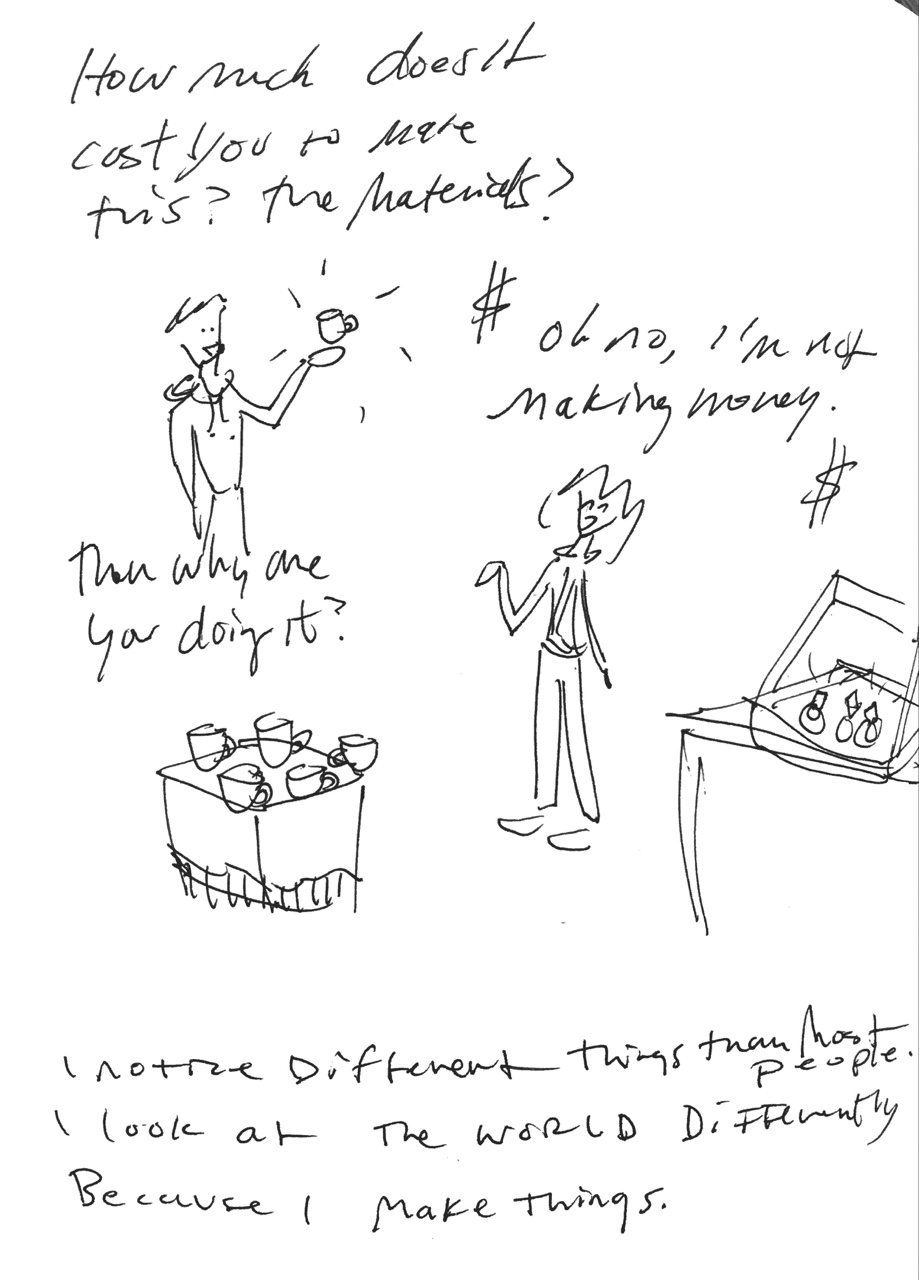 How much does it
cost you to make
this? the Materials?
$ oh no, I'm not
making money.
$
then why are
you doing it?
I notice Different things than Most
people.
I look at the WORLD Differently
Because I make things.